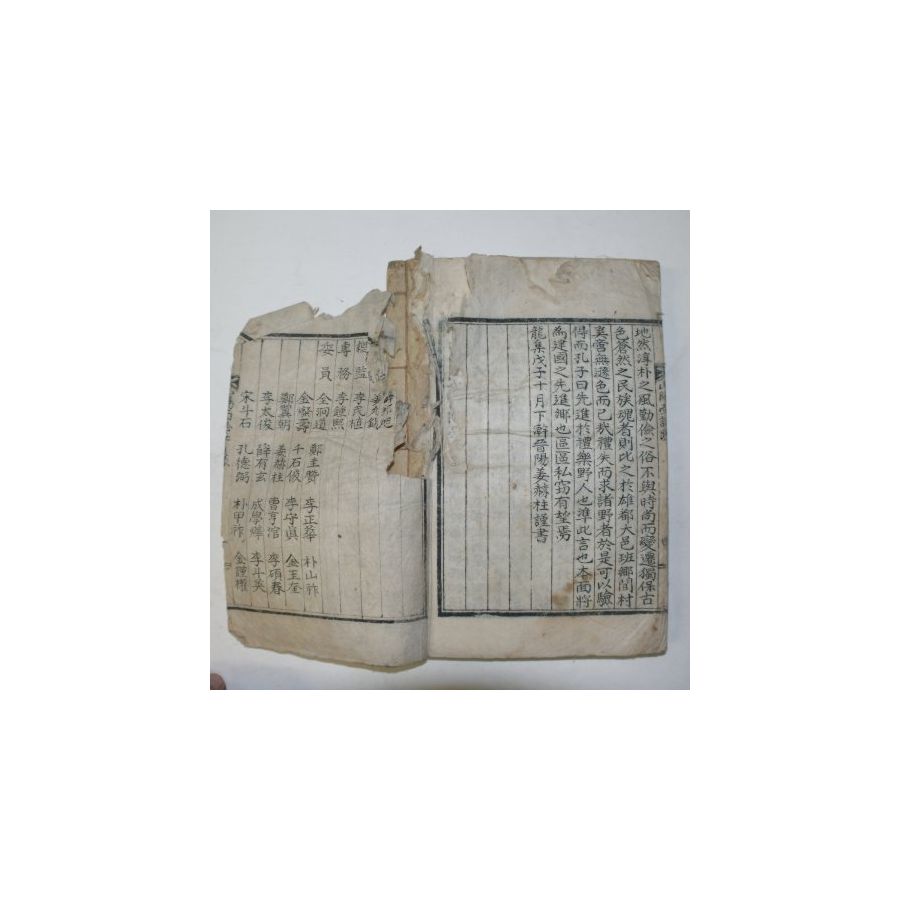 地然淳朴之風勤儉之俗不與時尚而變遷獨保古
色蒼然之民族魂者則此之於雄都大邑班鄉閭村
奚啻無遜色而已哉禮失而求諸野者於是可以驗
得而孔子曰先進於禮樂野人也準此言也本面將
為建國之先進鄉也區區私窃有望焉
龍集戊子十月下澣晉陽姜赫柱謹書
總監 李民植
專務 李鍾熙
委員 全洞道
鄭翼朝 千石俊 李守
李太俊 姜赫柱 曺亨
宋斗石 薛有玄 成學
孔德弼 朴甲祚 金謹
鄭圭贊 李正華 朴山祚
李碩春
李斗英